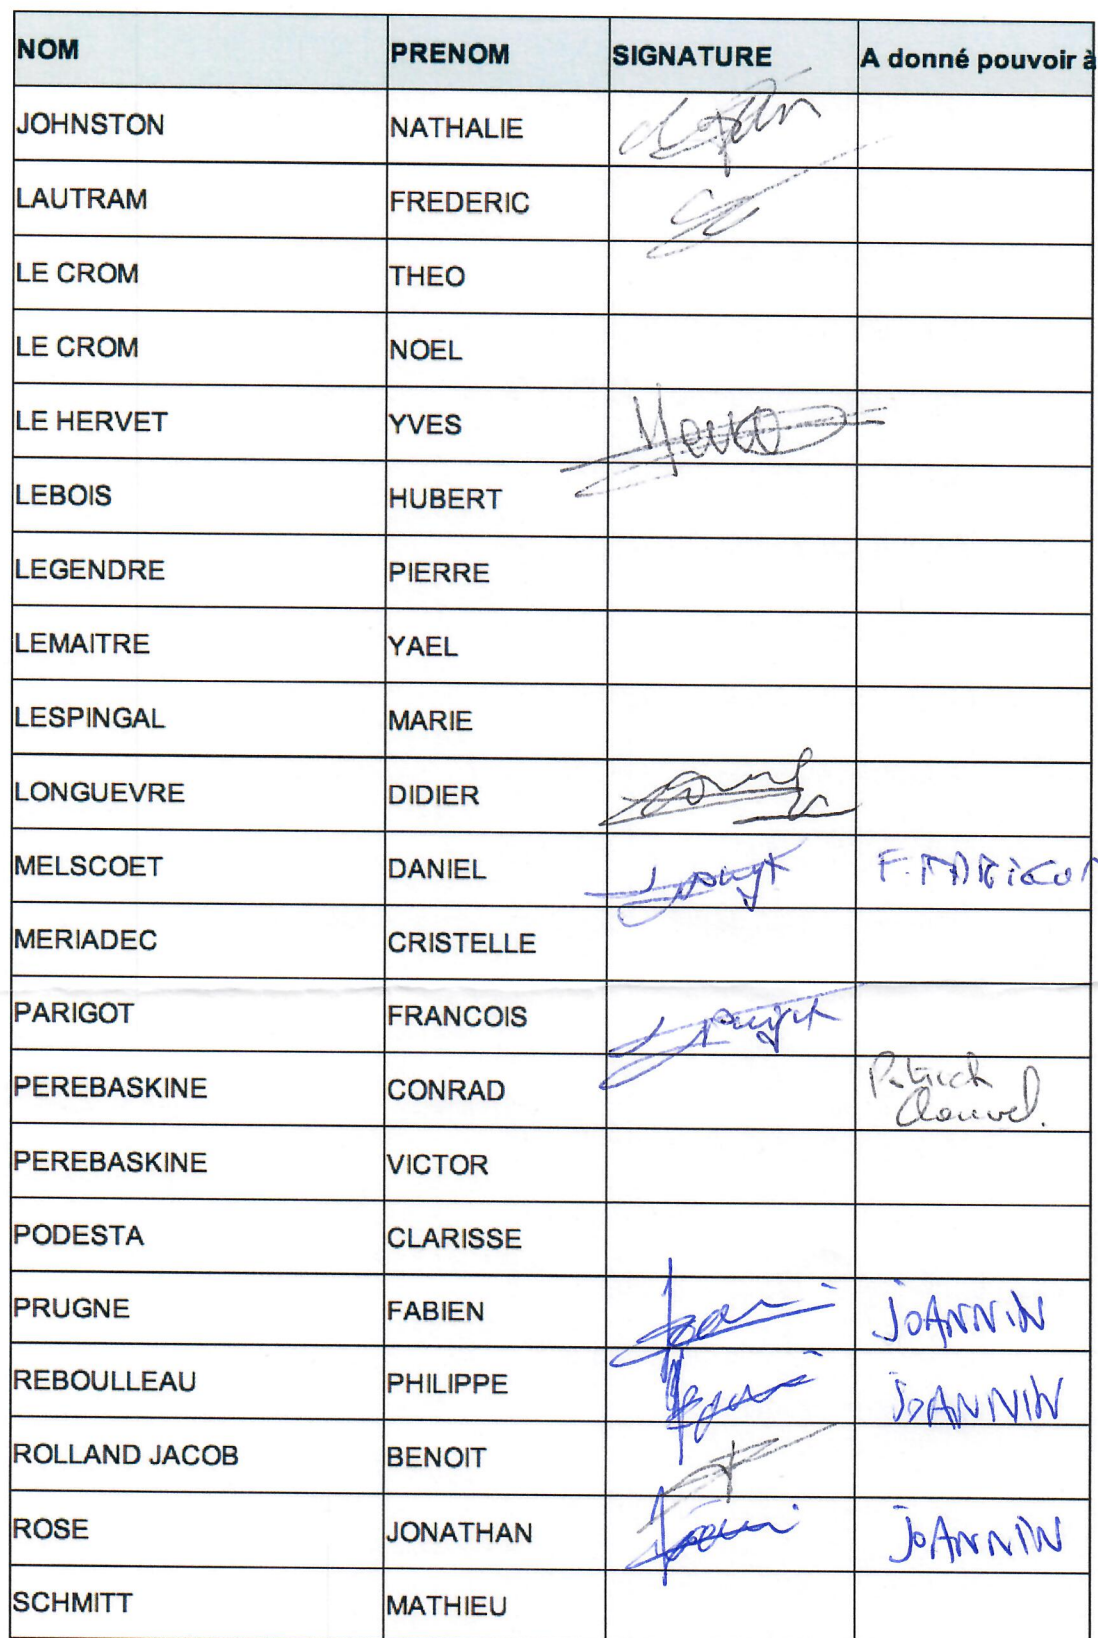 NOM PRENOM SIGNATURE A donné pouvoir à
JOHNSTON NATHALIE
LAUTRAM FREDERIC
LE CROM THEO
LE CROM NOEL
LE HERVET YVES
LEBOIS HUBERT
LEGENDRE PIERRE
LEMAITRE YAEL
LESPINGAL MARIE
LONGUEVRE DIDIER
MELSCOET DANIEL F.
MERIADEC CRISTELLE
PARIGOT FRANCOIS
PEREBASKINE CONRAD Patrick
PEREBASKINE VICTOR
PODESTA CLARISSE
PRUGNE FABIEN JOANNIN
REBOULLEAU PHILIPPE JOANNIN
ROLLAND JACOB BENOIT
ROSE JONATHAN JOANNIN
SCHMITT MATHIEU